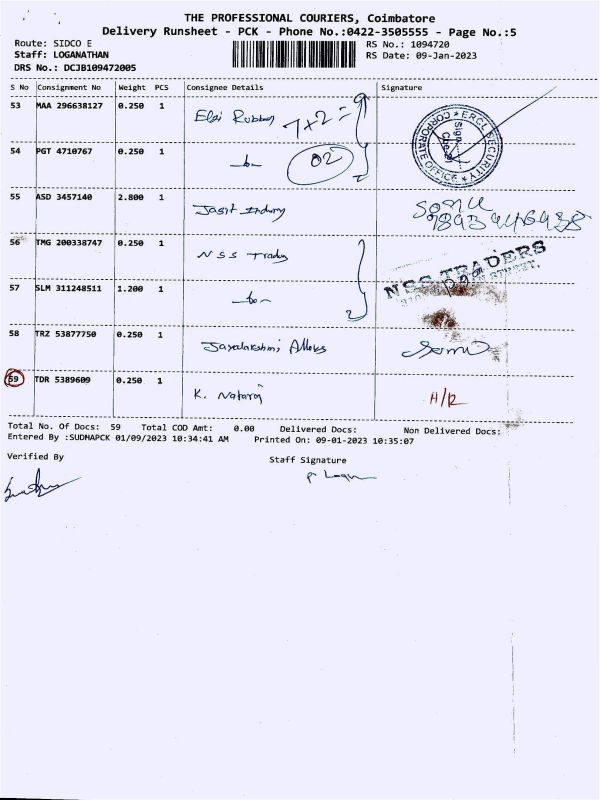 THE PROFESSIONAL COURIERS, Coimbatore
Delivery Runsheet - PCK - Phone No.:0422-3505555 - Page No.:5
Route: SIDCO E
RS No.: 1094720
Staff: LOGANATHAN
RS Date: 09-Jan-2023
DRS No.: DCJB109472005
S No Consignment No Weight PCS Consignee Details Signature
53 MAA 296638127 0.250 1 Elgi Rubber 7+2=9
ERCL SECURITY CORPORATE OFFICE
54 PGT 4710767 0.250 1 02
55 ASD 3457140 2.800 1
Sonu
56 TMG 200338747 0.250 1 NSS Trading
NSS TRADERS
57 SLM 311248511 1.200 1
58 TRZ 53877750 0.250 1 Jayalakshmi Alloys
59 TDR 5389609 0.250 1 K. Nataraj
Total No. Of Docs: 59 Total COD Amt: 0.00 Delivered Docs: Non Delivered Docs:
Entered By :SUDHAPCK 01/09/2023 10:34:41 AM Printed On: 09-01-2023 10:35:07
Verified By
Staff Signature